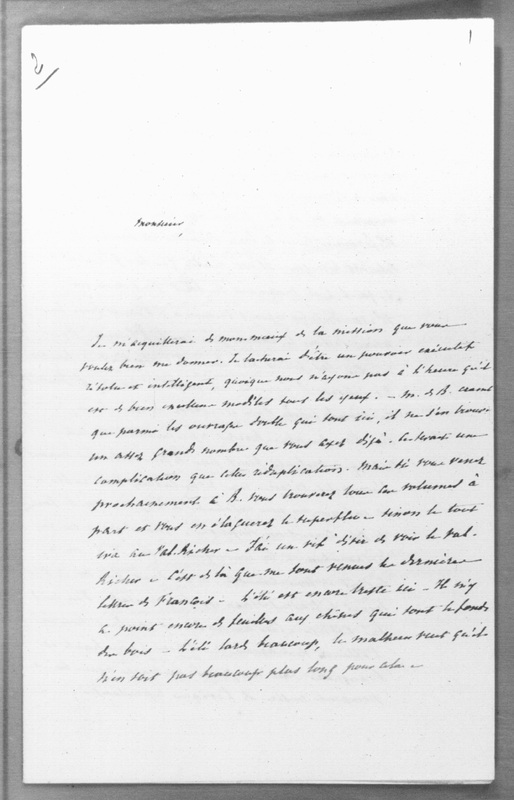 2/
1
Monsieur,
Je m'acquitterai de mon mieux de la mission que vous
voulez bien me donner. Je tacherai d'être un pouvoir exécutif
résolu et intelligent, quoique nous n'ayons pas à l'heure qu'il
est de bien excellens modèles sous les yeux. — M. de B. craint
que parmi les ouvrages double qui sont ici, il ne s'en trouve
un assez grand nombre que vous ayez déjà. Ce serait une
complication que cette réduplication. Mais si vous venez
prochainement à B. vous trouverez tous les volumes à
part et vous en élaguerez le superflu — sinon le tout
ira au Val-Richer — J'ai un vif désir de voir le Val-
Richer — C'est de là que me sont venues les dernières
lettres de François — L'été est encore triste ici — Il n'y
a point encore de feuilles aux chênes qui sont le fonds
du bois — L'été tarde beaucoup, le malheur veut qu'il
n'en soit pas beaucoup plus long pour cela —